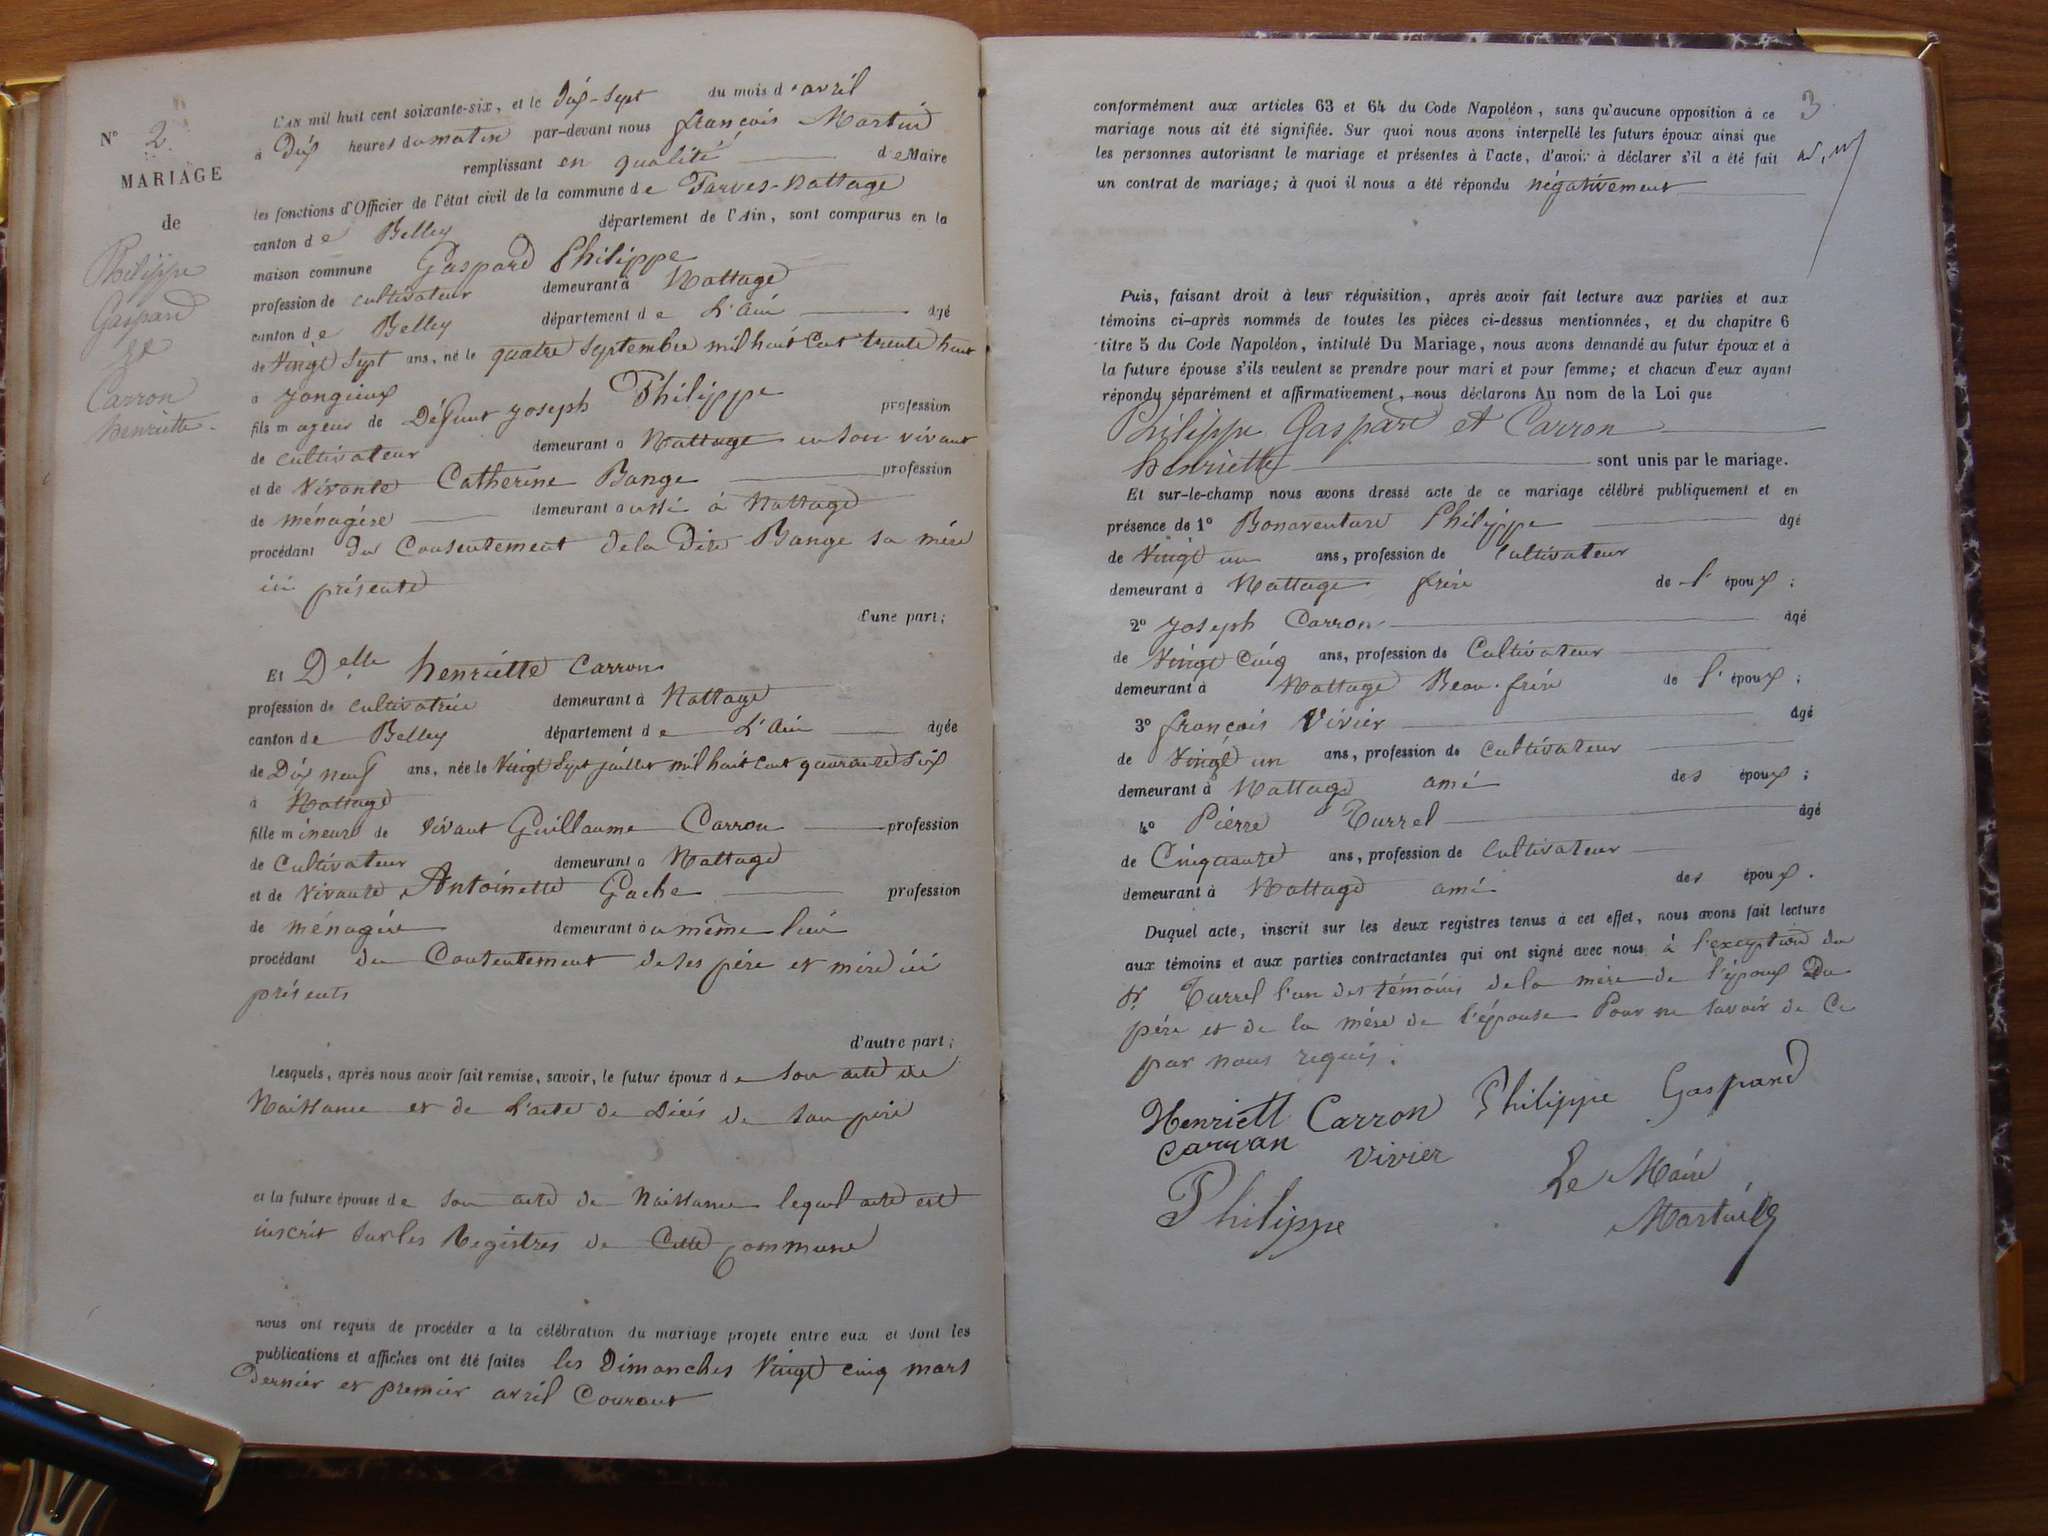 N° 2
MARIAGE
de
Philippe
Gaspard
et
Carron
henriette.
L'an mil huit cent soixante-six, et le dix-sept du mois d'avril
à Dix heures du matin par-devant nous françois Martin
remplissant en qualité de Maire
les fonctions d'Officier de l'état civil de la commune de Parves-Nattage
canton de Belley département de l'Ain, sont comparus en la
maison commune Gaspard Philippe
profession de cultivateur demeurant à Nattage
canton de Belley département de L'Ain âgé
de Vingt sept ans, né le quatre septembre mil huit Cent trente huit
à Jongieux
fils majeur de Défunt Joseph Philippe profession
de cultivateur demeurant à Nattage en son vivant
et de vivante Catherine Bange profession
de ménagère demeurant aussi à Nattage
procédant du Consentement de la Dite Bange sa mère
ici présente
d'une part;
Et Delle henriette Carron
profession de cultivatrice demeurant à Nattage
canton de Belley département de L'Ain âgée
de Dix neuf ans, née le Vingt Sept juillet mil huit cent quarante Six
à Nattage
fille mineure de vivant Guillaume Carron profession
de Cultivateur demeurant à Nattage
et de vivante Antoinette Gache profession
de ménagère demeurant au même lieu
procédant du Consentement de ses père et mère ici
présents
d'autre part;
Lesquels, après nous avoir fait remise, savoir, le futur époux de son acte de
Naissance et de l'acte de Décès de son père
et la future épouse de son acte de Naissance lequel acte est
inscrit sur les Registres de Cette Commune
nous ont requis de procéder à la célébration du mariage projeté entre eux et dont les
publications et affiches ont été faites les Dimanches Vingt cinq mars
Dernier et premier avril Courant
3
conformément aux articles 63 et 64 du Code Napoléon, sans qu'aucune opposition à ce
mariage nous ait été signifiée. Sur quoi nous avons interpellé les futurs époux ainsi que
les personnes autorisant le mariage et présentes à l'acte, d'avoir à déclarer s'il a été fait
un contrat de mariage; à quoi il nous a été répondu négativement
Puis, faisant droit à leur réquisition, après avoir fait lecture aux parties et aux
témoins ci-après nommés de toutes les pièces ci-dessus mentionnées, et du chapitre 6
titre 5 du Code Napoléon, intitulé Du Mariage, nous avons demandé au futur époux et à
la future épouse s'ils veulent se prendre pour mari et pour femme; et chacun d'eux ayant
répondu séparément et affirmativement, nous déclarons Au nom de la Loi que
Philippe Gaspard et Carron
henriette sont unis par le mariage.
Et sur-le-champ nous avons dressé acte de ce mariage célébré publiquement et en
présence de 1° Bonaventure Philippe âgé
de Vingt un ans, profession de cultivateur
demeurant à Nattage frère de l'époux;
2° Joseph Carron âgé
de Vingt Cinq ans, profession de Cultivateur
demeurant à Nattage Beau-frère de l'époux;
3° françois Vivier âgé
de Vingt un ans, profession de Cultivateur
demeurant à Nattage ami des époux;
4° Pierre Turrel âgé
de Cinquante ans, profession de Cultivateur
demeurant à Nattage ami des époux.
Duquel acte, inscrit sur les deux registres tenus à cet effet, nous avons fait lecture
aux témoins et aux parties contractantes qui ont signé avec nous à l'exception du
Sr Turrel l'un des témoins de la mère de l'époux Du
père et de la mère de l'épouse Pour ne savoir de Ce
par nous requis.
Henriett Carron Philippe Gaspard
carran vivier Le Maire
Philippe Martin